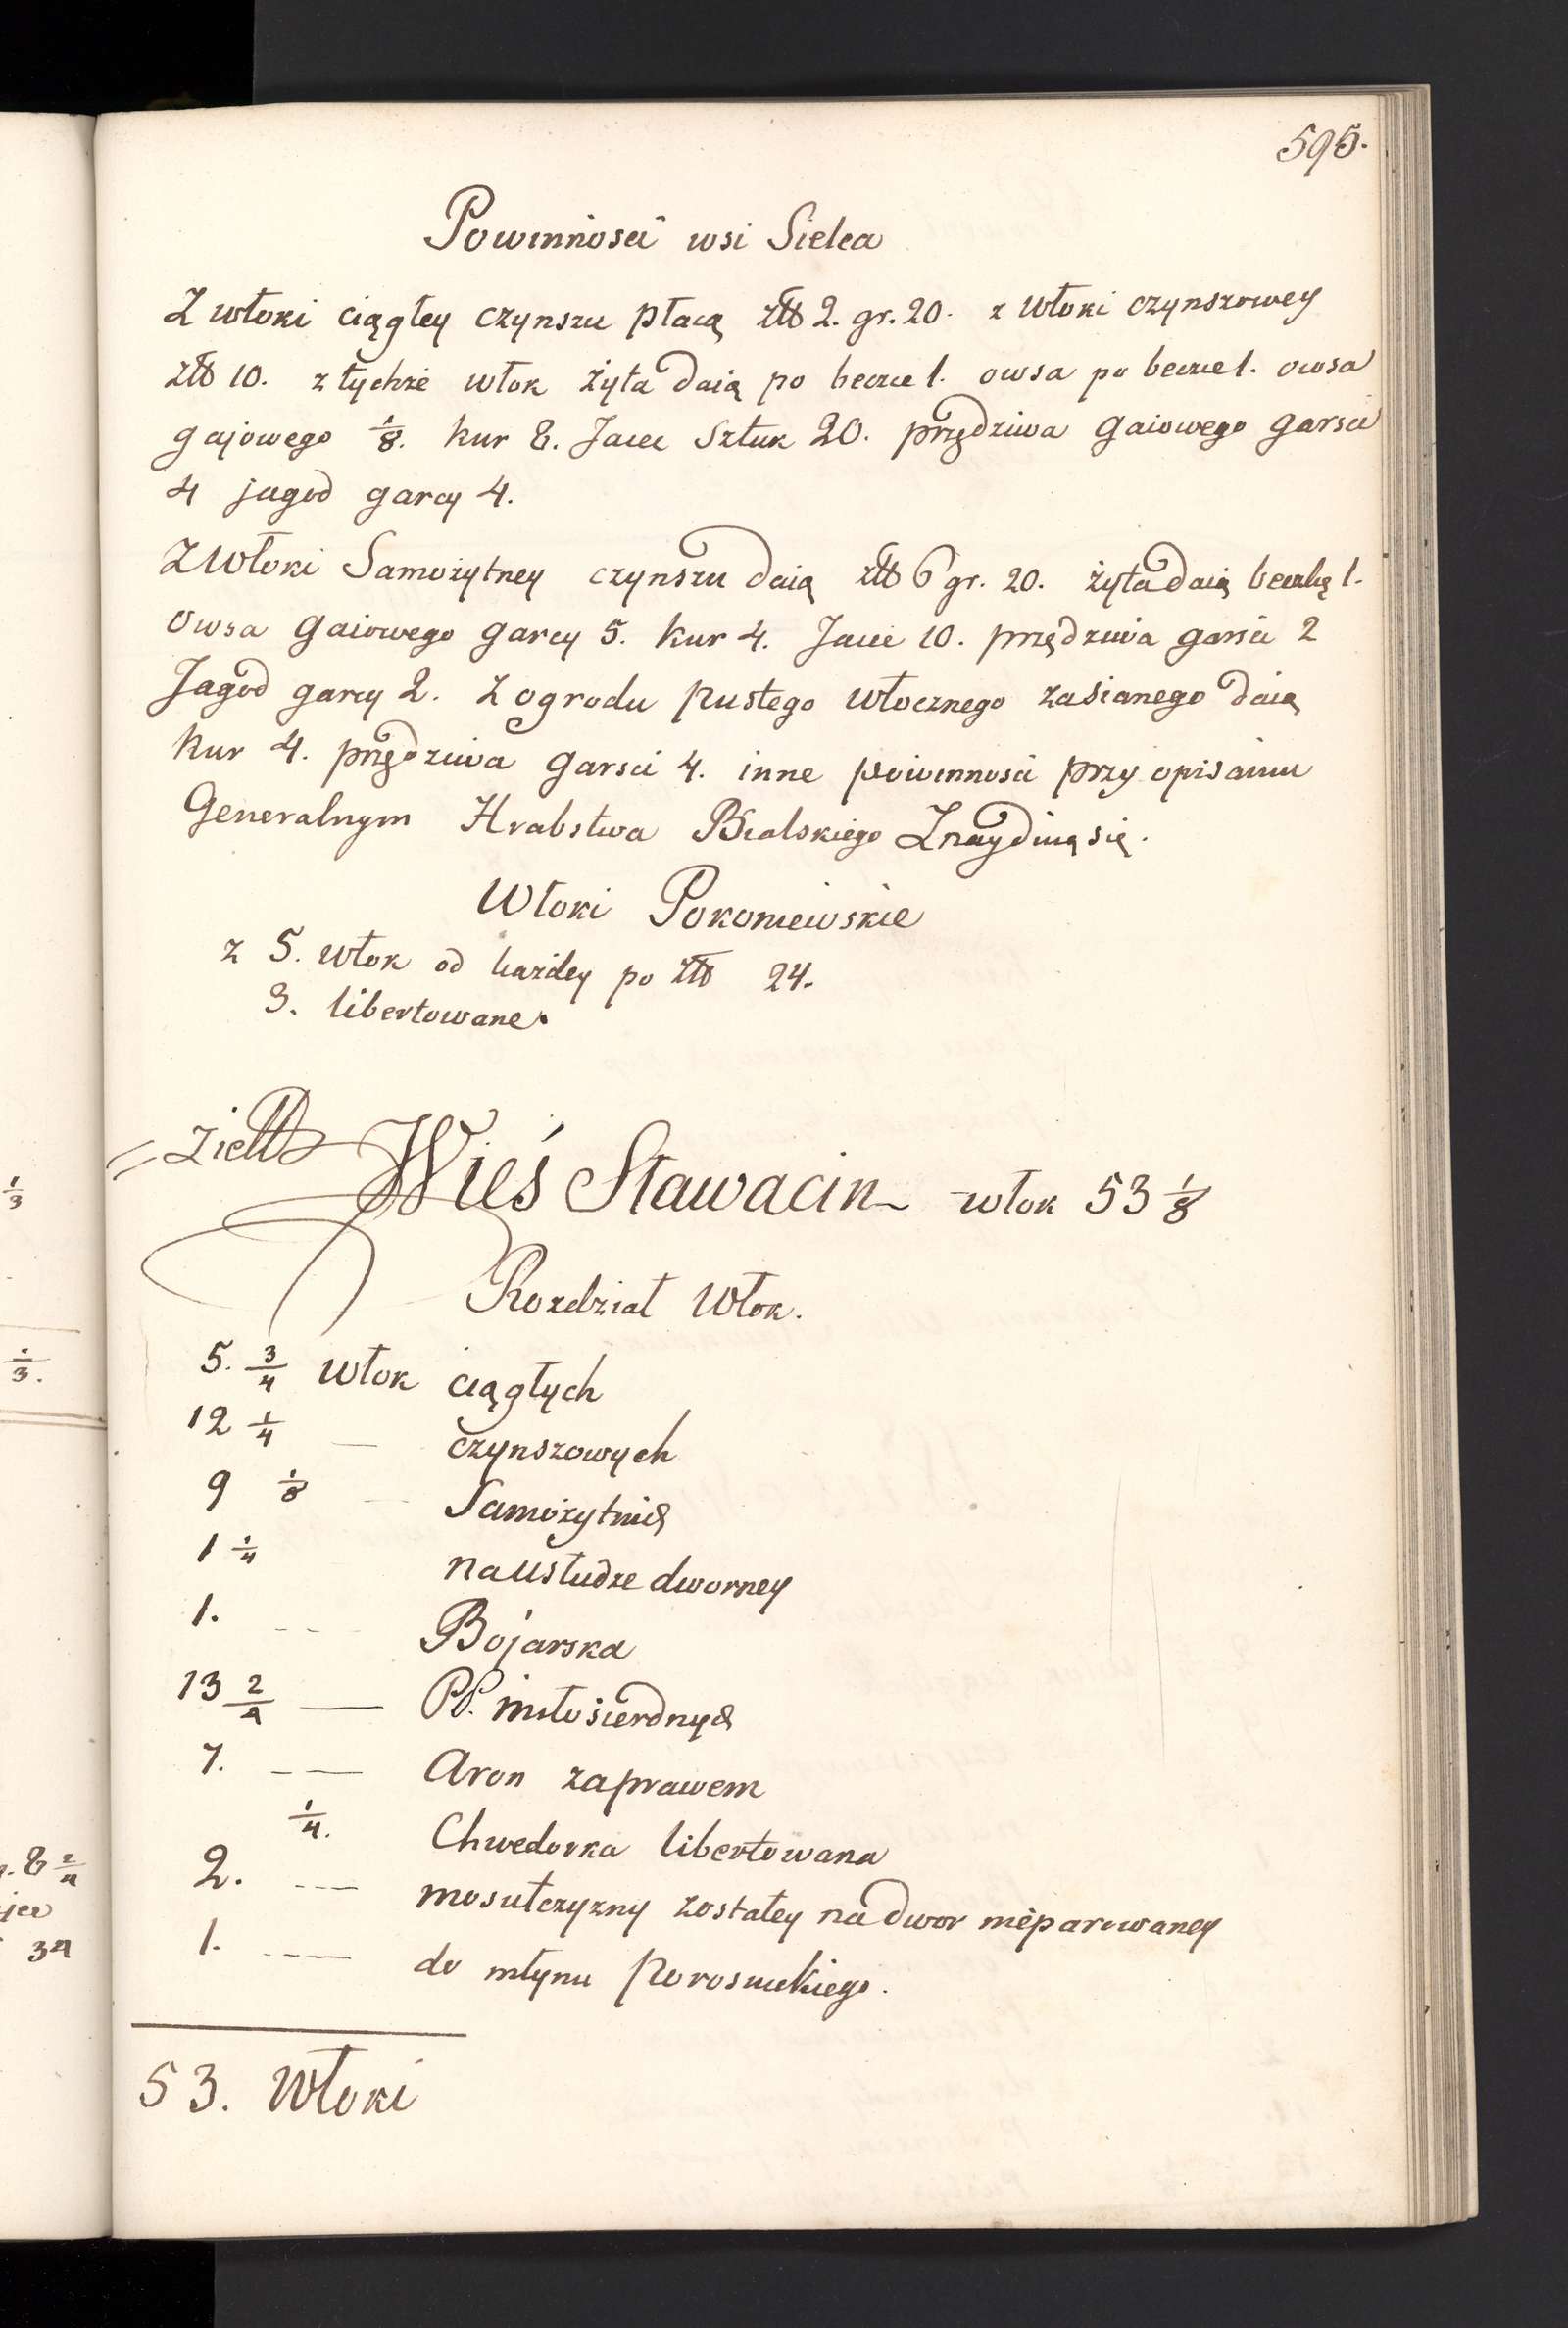 595.
Powinnosci wsi Sielca
Z włoki ciągłey czynszu płacą złł 2. gr. 20. z włoki czynszowey
złł 10. z tychże włok żyta daią po beczce 1. owsa po beczce 1. owsa
gajowego 1/8. kur 8. Jaiec sztuk 20. przędziwa gaiowego garsci
4 jagod garcy 4.
Z Włoki Samożytney czynszu daią złł 6 gr. 20. żyta daią beczkę 1.
Owsa gaiowego garcy 5. kur 4. Jaiec 10. przędziwa garsci 2
Jagod garcy 2. z ogrodu pustego włocznego zasianego daią
kur 4. przędziwa garsci 4. inne powinnosci przy opisaniu
Generalnym Hrabstwa Bialskiego Znaydują się.
Włoki Pokoniewskie
z 5. włok od każdey po złł 24.
3. libertowane.
Wieś Sławacin włok 53 1/8
Rozdział Włok.
5. 3/4 włok ciągłych
12 1/4 — czynszowych
9 1/8 — Samożytnich
1 1/4 na usłudze dworney
1. --- Bojarska
13 2/4 — PP. miłosierdnych
7. -- Aron zaprawem
1/4. Chwedorka libertowana
2. --- mosulczyzny zostałey na dwor nieparowaney
1. --- do młynu Porosiuckiego.
53. Włoki
1/3
1/3.
8 2/4
34